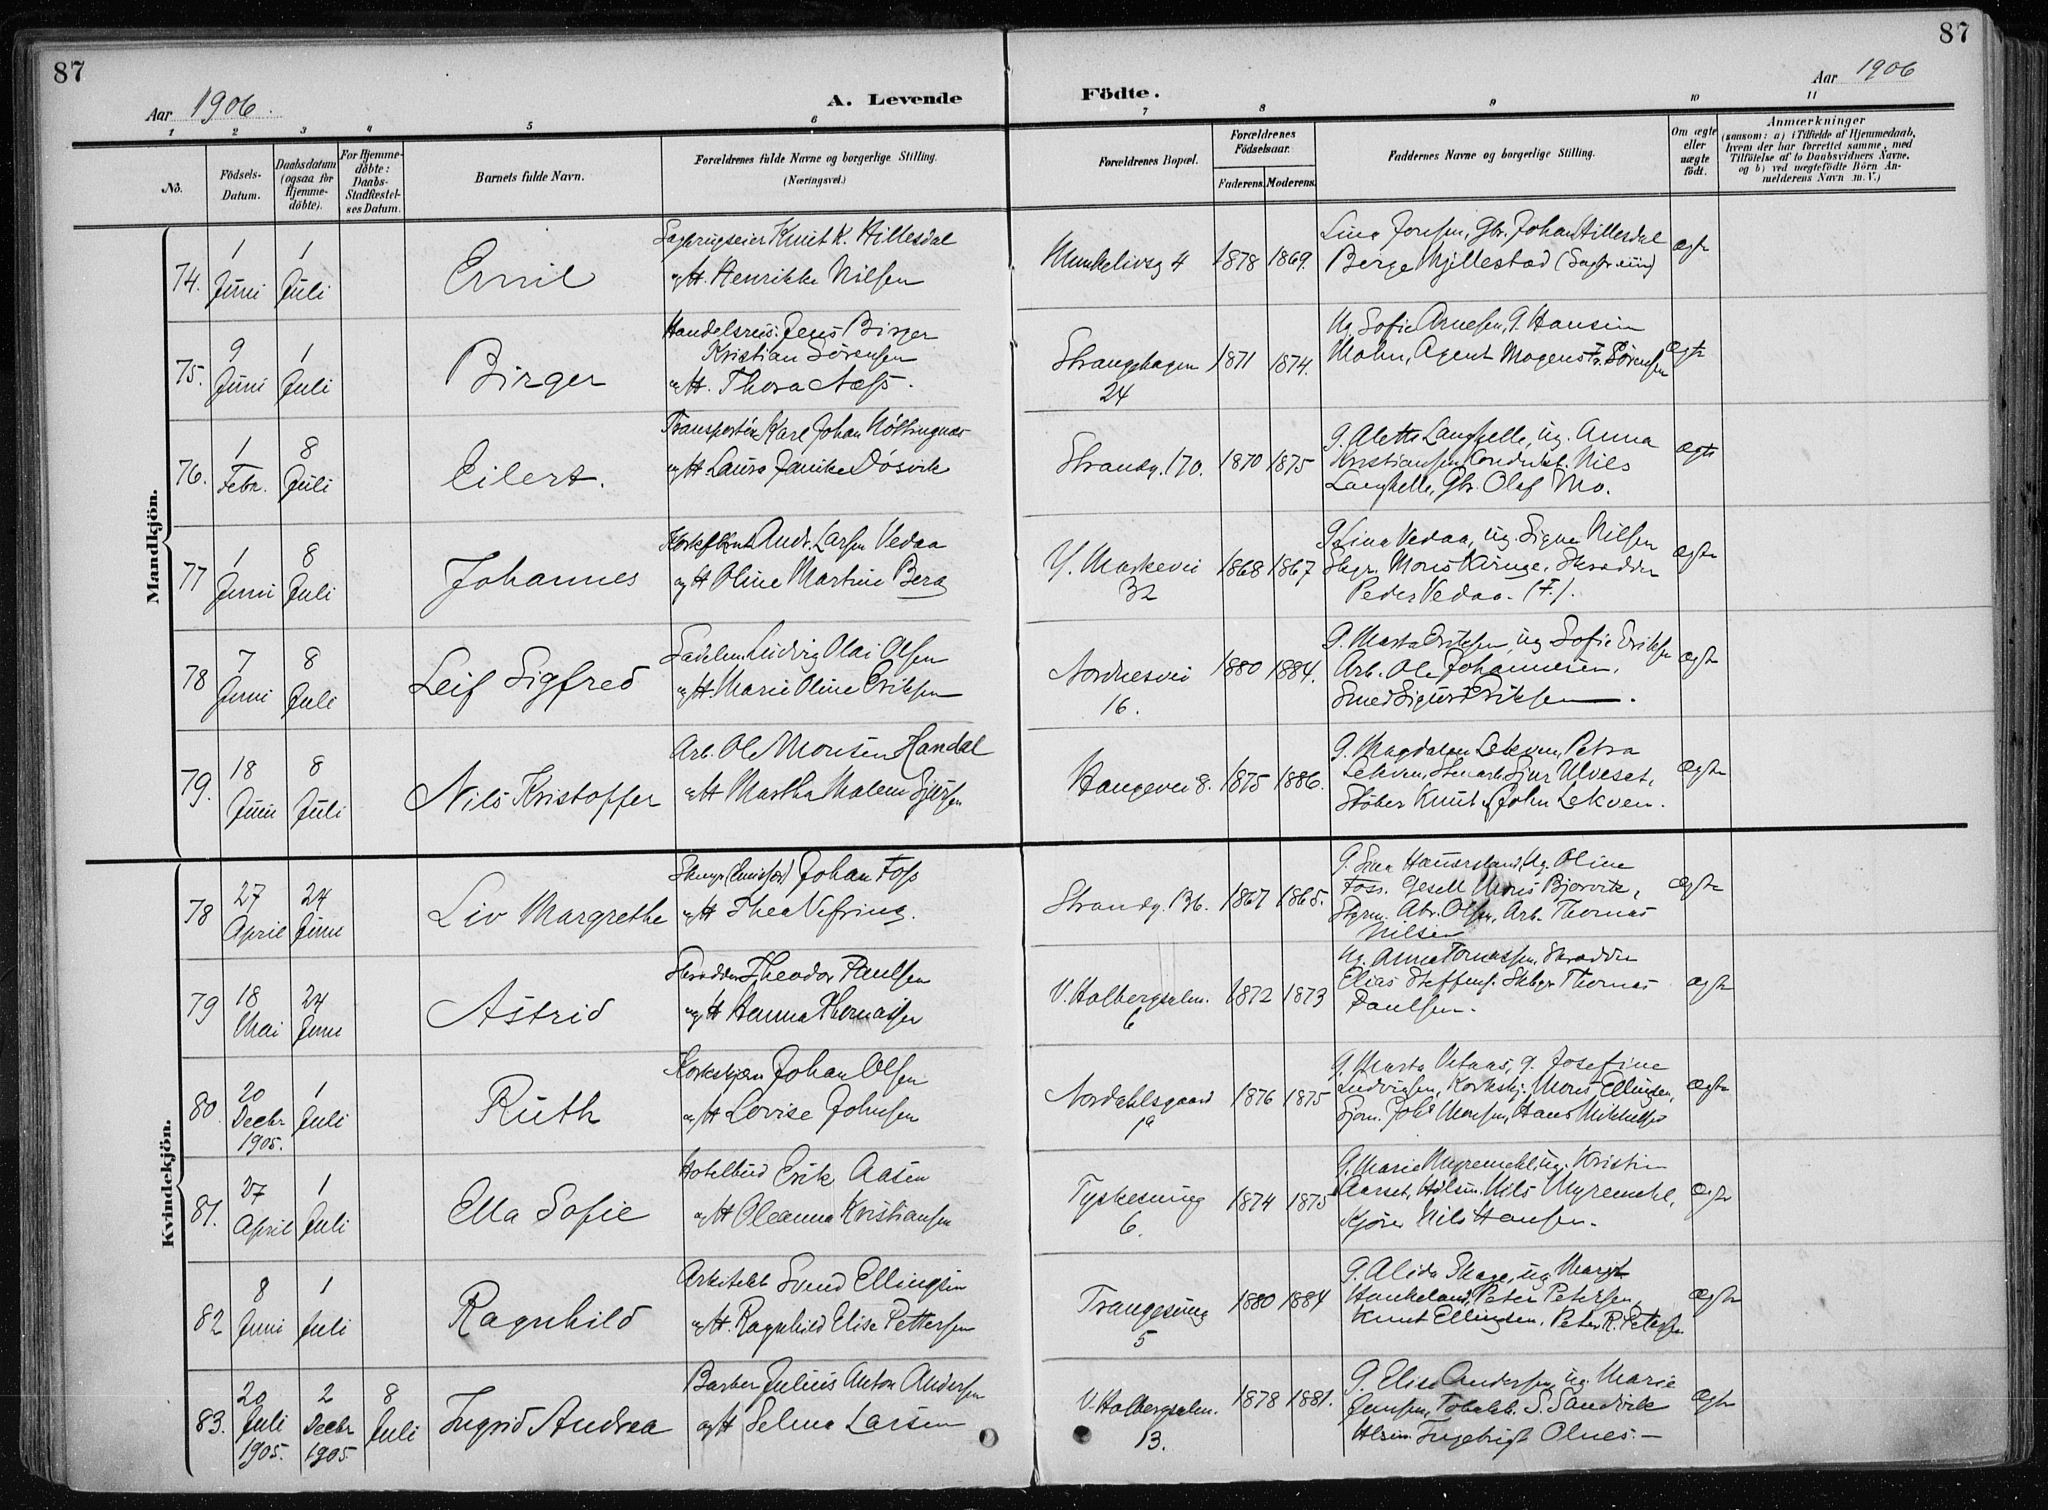 87
87
Aar 1906.
A. Levende
Födte.
Aar 1906
1 2 3 4 5 6 7 8 9 10 11
No.
Födsels-
Datum.
Daabsdatum
(ogsaa for
Hjemme-
döbte).
For Hjemme-
döbte:
Daabs-
Stadfæstel-
ses Datum.
Barnets fulde Navn.
Forældrenes fulde Navne og borgerlige Stilling.
(Næringsvei.)
Forældrenes Bopæl.
Forældrenes
Födselsaar.
Faderens. Moderens.
Faddernes Navne og borgerlige Stilling.
Om ægte
eller
uægte
födt.
Anmærkninger
(saasom: a) i Tilfælde af Hjemmedaab,
hvem der har forrettet samme, med
Tilföielse af to Daabsvidners Navne,
og b) ved uægtefödte Börn An-
melderens Navn m. V.)
Mandkjön.
74. 1 Juni 1 Juli Emil
Sagbrugseier Knut K. Hillesdal
og H. Henrikke Nilsen
Munkelivsg 4 1878 1869.
Lina Jonsen, Gbr. Johan Hillesdal
Berge Hjillestad
Ægte
75. 9 Juni 1 Juli Birger
Handelsreis. Jens Birger
Kristian Sörensen
og H. Thora Næss.
Strangehagen
24
1871 1874.
Ug. Sofie Arnesen, G. Hansine
Mohn, Agent Mogens Fr. Sörensen
Ægte
76. 1 Febr. 8 Juli Eilert.
Karl Johan
og H. Laura Janike Dösvik
Strandg. 170. 1870 1875
G. Alette Langhelle, ug. Anna
Kristiansen, Conduct. Nils
Langhelle, Gbr. Olaf Mo.
Ægte
77 1 Juni 8 Juli Johannes
Andr. Larsen Vedaa
og H Oline Martine Berg
Y. Markevei
32
1868 1867
G. Lina Vedaa, ug. Signe Nilsen
Mons Skrædder
Peder Vedaa. (F.).
Ægte
78 7 Juni 8 Juli Leif Sigfred
Ludvig Olai Olsen
og H. Marie Oline Eriksen
Nordnesvei
16.
1880 1884.
G. Marta Eriksen, ug Sofie Eriksen
Arb. Ole Johannesen,
Smed Sigurd Eriksen.
Ægte
79. 18 Juni 8 Juli Nils Kristoffer
Arb. Ole Monsen Handal
og H Martha Malene Sjursen
Haugevei 8. 1875 1886.
G. Magdalen Lekven, Petra
Lekven, Stenarb. Sjur Ulveset,
Stöber Knut & John Lekven.
Ægte
Kvindekjön.
78 27 April 24 Juni Liv Margrethe
Johan Foss
og H Thea Vefring.
Strandg. 136. 1867 1865.
ug Oline
Foss. Gesell Mons Bjorvik,
Styrm. Abr. Olsen, Arb. Thomas
Nilsen
Ægte
79 18 Mai 24 Juni Astrid
Skrædder Theodor Paulsen
og H Hanna Thomassen
V. Holbergsalm.
6
1872 1873
Ug. Anna Tomassen, Skrædder
Elias Steffens. Thomas
Paulsen.
Ægte
80. 20 Decbr 1905. 1 Juli Ruth
Korkskjær Johan Olsen
og H Lovise Johnsen
Nordahlsgaard
1a
1876 1875
G. Marta g. Josefine
Ludvigsen, Korkskj. Mons Ellingsen,
Monsen, Hans Mikkelsen
Ægte
81. 27 April 1 Juli Ella Sofie
Hotelbud Erik Aasen
og H Oleanna Kristiansen
Tyskesmug
6.
1874 1875
G. Marie Myremehl, ug. Kristin
Aarset, Nils Myremehl,
Nils Hansen.
Ægte
82 8 Juni 1 Juli Ragnhild
Arkitekt Svend Ellingsen
og H. Ragnhild Elise Pettersen
Trangesmug
5
1880 1884
G. Alida Skage, ug Margit
Haukeland, Peter Petersen,
Knut Ellingsen. Peter R. Petersen
Ægte
83. 20 Juli 1905. 2 Decbr 1905. 8 Juli Ingrid Andrea
Barber Julius Anton Andersen
og H Selma Larsen
V. Holbergsalm.
13.
1878 1881.
G. Elise Andersen, ug Marie
Jensen, S. Sandvik
Ingebrigt Olnes.
Ægte